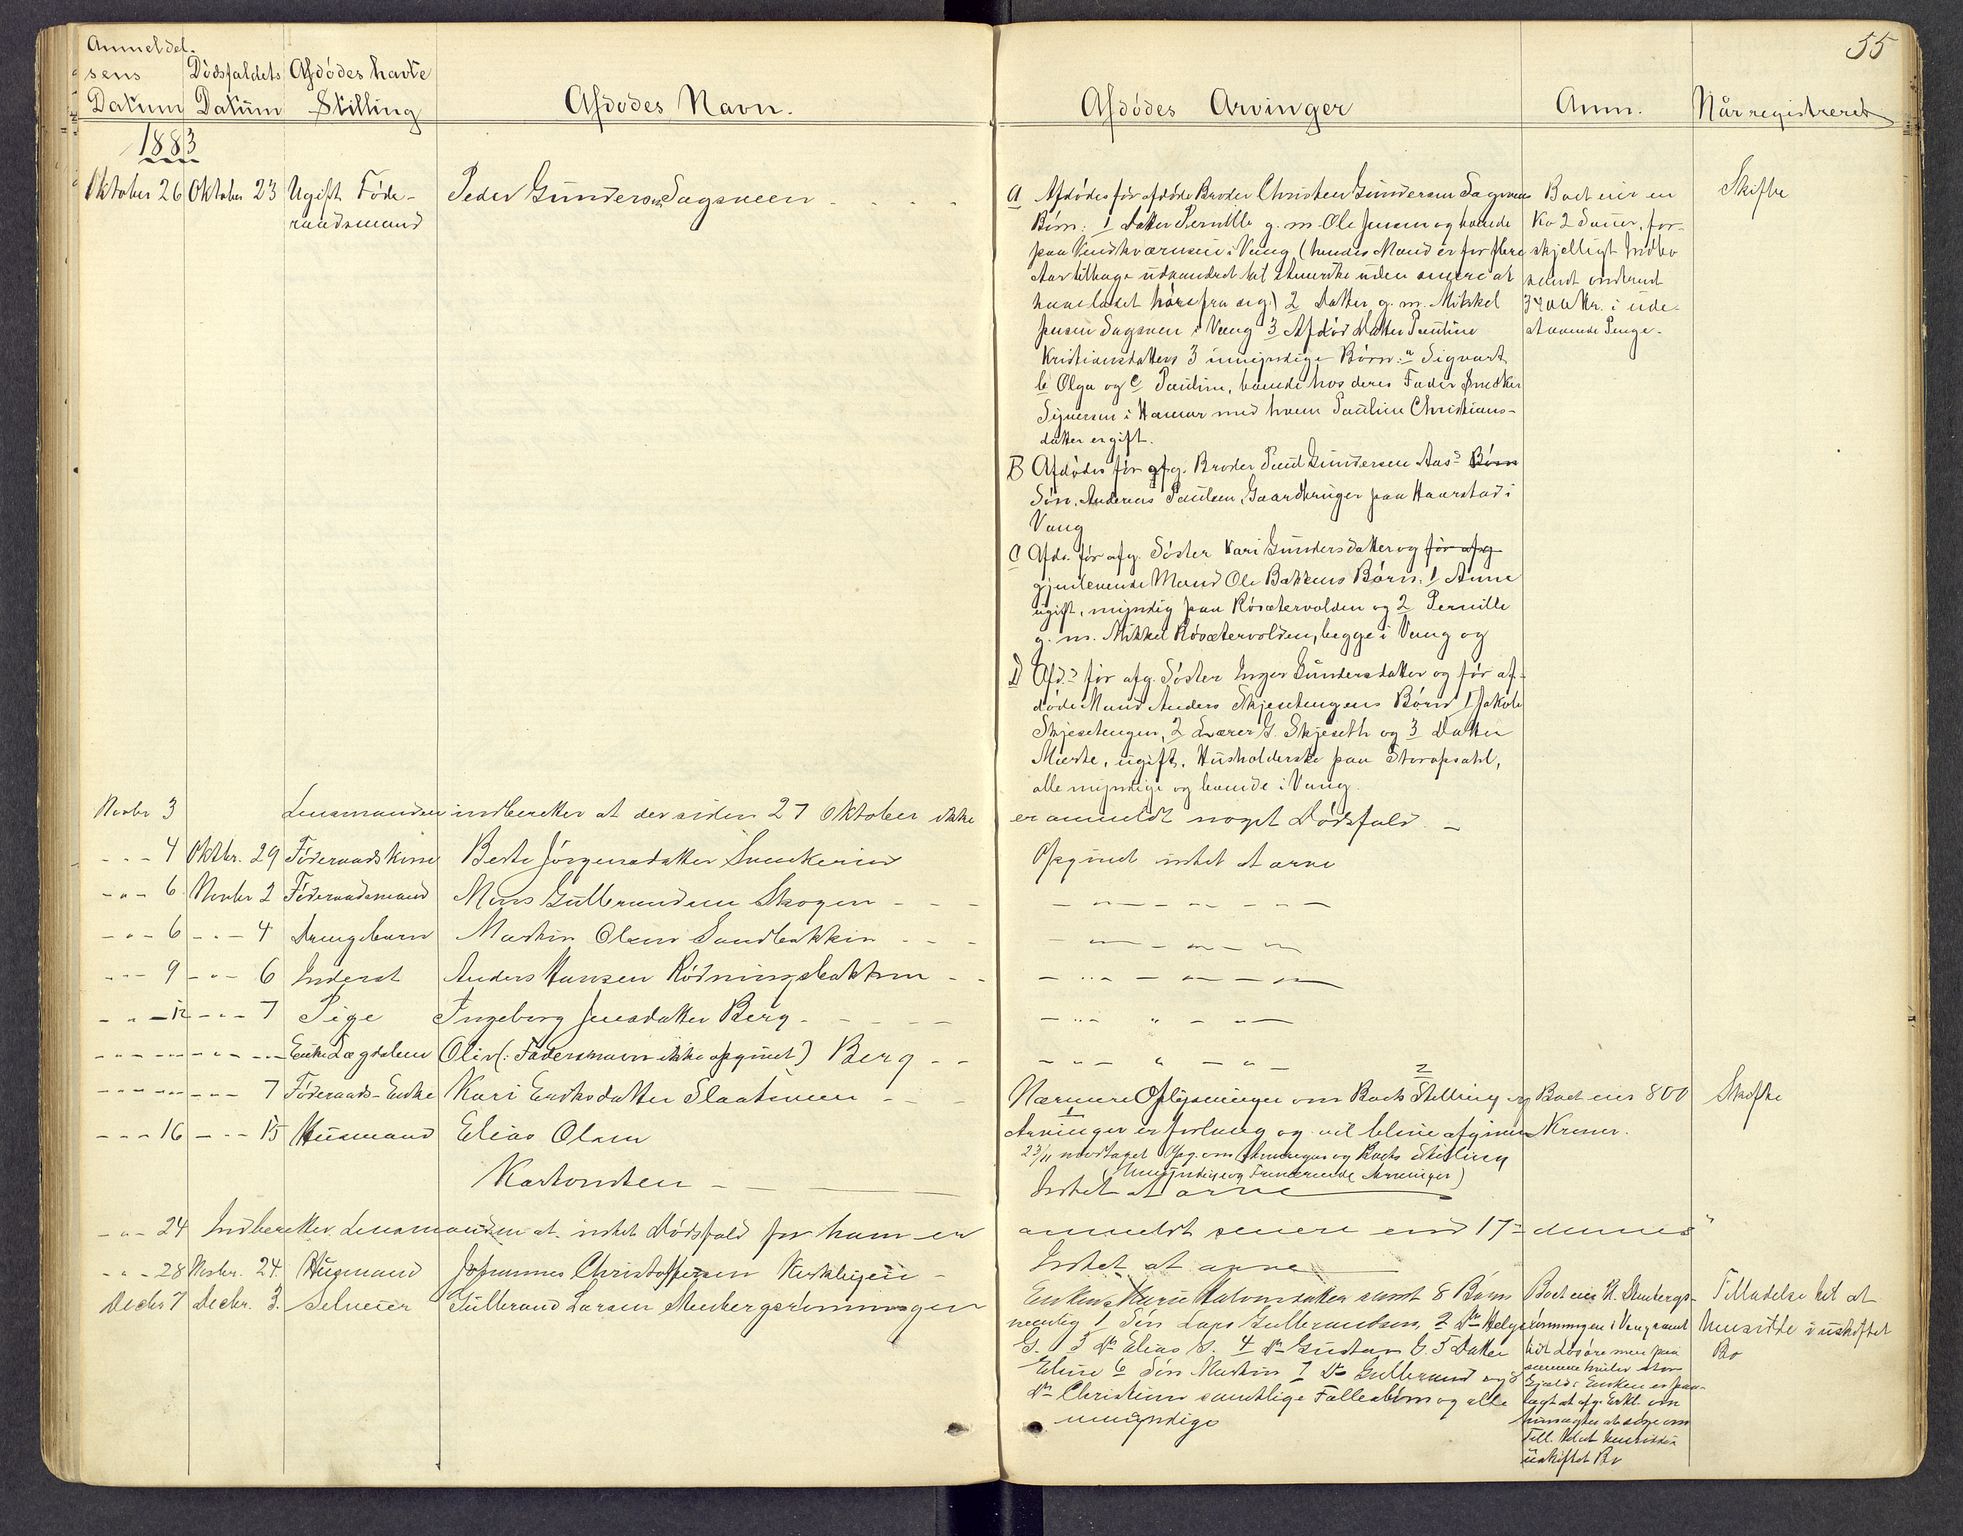 55
Anmeldel-
sens
Datum
Dødsfaldets
Datum
Afdødes havte
Stilling
Afdødes Navn.
Afdødes Arvinger
Anm.
Når registreret
1883
Oktober 26 Oktober 23 Ugift Føde-
raadsmand
Peder Gundersen Sagsveen
A Afdødes før afdøde Broder Christen Gundersen Sagsveens
Børn: 1 Datter Pernille g. m. Ole Jensen og boende
paa Vindkværnseie i Vang (hendes Mand er for flere
Aar tilbage udvandret til Amerika uden senere at
have ladet høre fra sig.) 2 Datter g. m. Mikkel
Jensen Sagsveen i Vang 3 Afdød Datter Pauline
Kristiansdatters 3 umyndige Børn: a Sigvart
b Olga og c Pauline, boende hos deres Fader Snedker
i Hamar med hvem Pauline Christians-
datter er gift.
B Afdødes før afg. Broder Paul Gundersen Aas's Børn
Søn, Andreas Paulsen, Gaardbruger paa Haarstad i
Vang
C Afds. før afg. Søster Kari Gundersdatter og før afg
gjenlevende Mand Ole Bakkens Børn: 1 Anne
ugift, myndig paa Røsætervolden og 2 Pernille
g. m. Mikkel Røsætervolden, begge i Vang og
D Afd.s før afg. Søster Inger Gundersdatter og før af-
døde Mand Anders Skjesetengens Børn 1 Jakob
Skjesetengen, 2 Lærer G. Skjeseth og 3 Datter
Marte, ugift, Husholderske paa Storopsahl,
alle myndige og boende i Vang.
Boet eier en
Ko 2 Sauer, for-
skjelligt Indbo
samt omtrent
3400 Kr. i ude-
staaende Penge.
Skifte
Novbr 3 Lensmanden indberetter at der siden 27 Oktober ikke er anmeldt noget Dødsfald. -
- " - 4 Oktbr. 29 Føderaadskone Berte Jørgensdatter Opgivet intet at arve
- " - 6 Novbr 2 Føderaadsmand Mons Gulbrandsen Skogen - - - - " - " - " -
- " - 6 - " - 4 Drengebarn Martin Olsen Sandbakken - - - - " - " - " -
- " - 9 - " - 6 Inderst Anders Hansen Rødningsbakken - - - " - " - " -
- " - 12 - " - 7 Pige Ingeborg Jensdatter Berg - - - - - " - " - " -
- " - " - " - " Enke Lægdslem Oliv (: Fadersnavn ikke opgivet) Berg - - - " - " - " -
- " - " - " - 7 Føderaads-Enke Kari Eriksdatter Slaatsveen - - - Nærmere Oplysninger om Boets Stilling og Boet eier 800 Skifte
Arvinger er forlang og vil blive afgiven Kroner.
23/11 modtaget Opg. om Arvinger og Boets Stilling
(Umyndige og Fraværende Arvinger)
- " - 16 - " - 15 Husmand Elias Olsen
Karlondsten - - - Intet at arve
- " - 24 Indberetter Lensmanden at intet Dødsfald for ham er anmeldt senere end 17de dennes
- " - 28 Novbr. 24 Husmand Johannes Christophersen Kirkebyeie - Intet at arve
Decbr 7 Decbr. 3. Selveier Gulbrand Larsen Stenbergsrønningen
Enken Marie Halvorsdatter samt 8 Børn
nemlig 1 Søn Lars Gulbrandsen, 2 Do Helge
G. 3 Do Elias G. 4 Do Gustav G. 5 Datter
Eline 6 Søn Martin 7 Do Gulbrand og 8
Do Christian samtlige Fællesbørn og alle
umyndige
Boet eier H. Stenbergs-
rønningen i Vang samt
lidt Løsøre men paa
samme hviler stor
Gjæld; Enken er paa-
lagt at afg. Erkl. om
hun agter at søge om
Till. til at hensidde i
uskiftet Bo
Tilladelse til at
hensidde i uskiftet
Bo